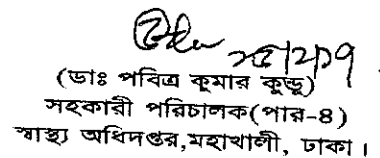 (ডাঃ পবিত্র কুমার কুন্ডু)
সহকারী পরিচালক(পার-৪)
স্বাস্থ্য অধিদপ্তর,মহাখালী, ঢাকা।